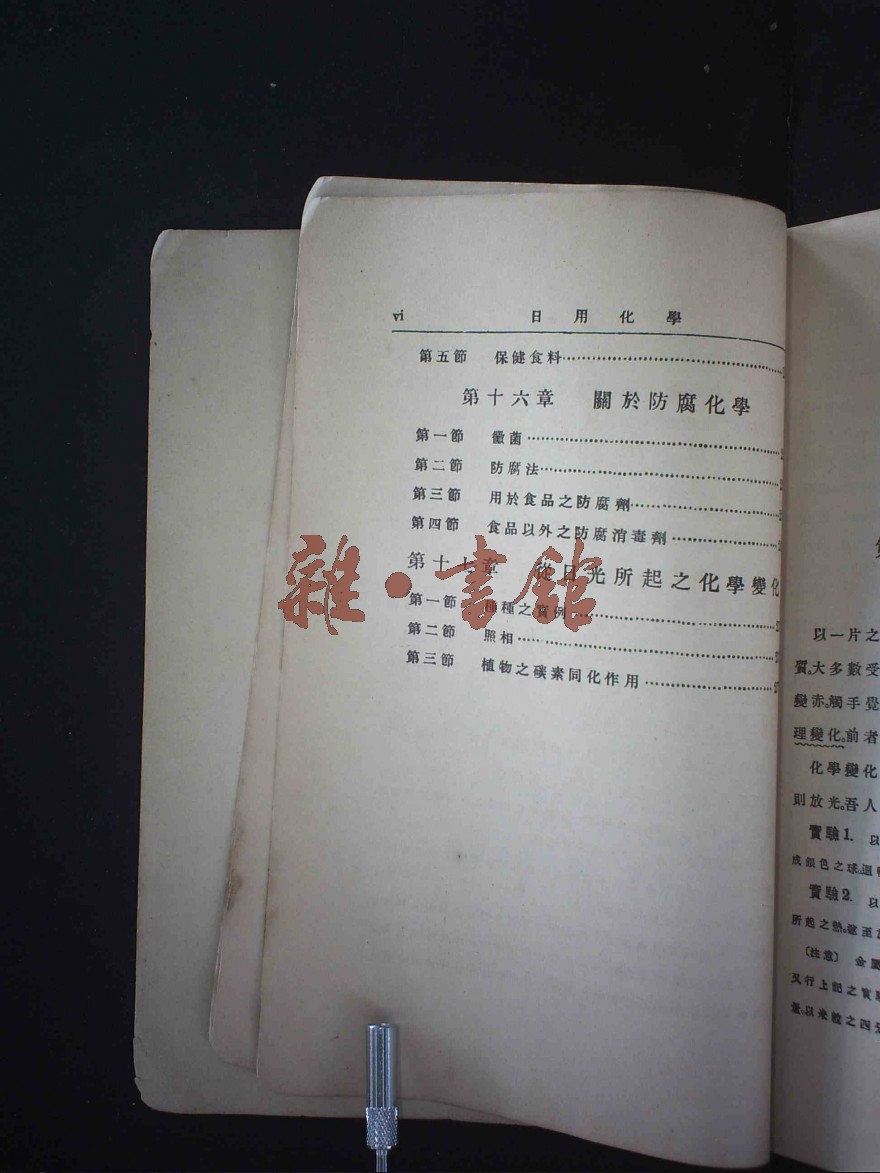 vi 日用化學
第五節 保健食料
第十六章 關於防腐化學
第一節 黴菌
第二節 防腐法
第三節 用於食品之防腐劑
第四節 食品以外之防腐消毒劑
第十七章 從日光所起之化學變化
第一節 種種之實例
第二節 照相
第三節 植物之碳素同化作用
雜·書館
以一片之
質。大多數受
變赤。觸手覺
理變化。前者
化學變化
則放光。吾人
實驗1. 以
成銀色之球。迴
實驗2. 以
所起之熱。遂至
(注意) 金
又行上記之實
量。以米粒之四